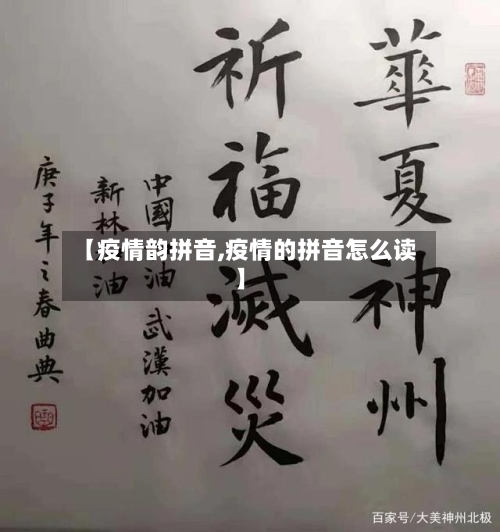 華夏神州
祈福滅災
中國油 武漢加油
新林油
庚子年之春曲典
【疫情韵拼音,疫情的拼音怎么读
】
百家号/大美神州北极